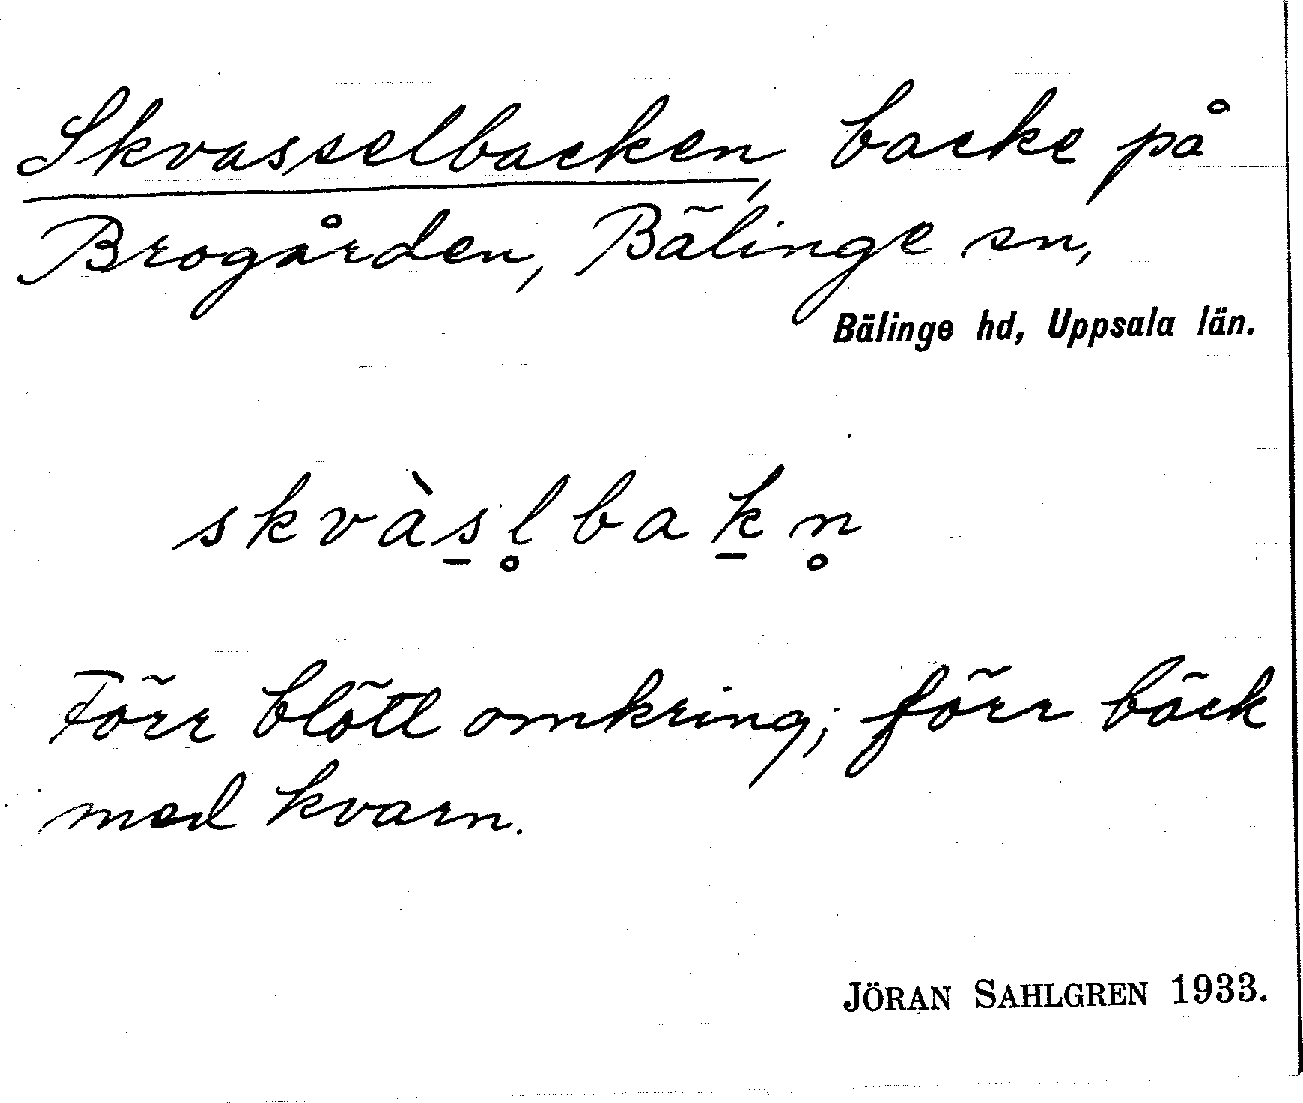 Skvasselbacken, backe på
Brogården, Bälinge sn,
Bälinge hd, Uppsala län.
skvàs̲l̥bak̲n̥
Förr blött omkring; förr bäck
med kvarn.
JÖRAN SAHLGREN 1933.